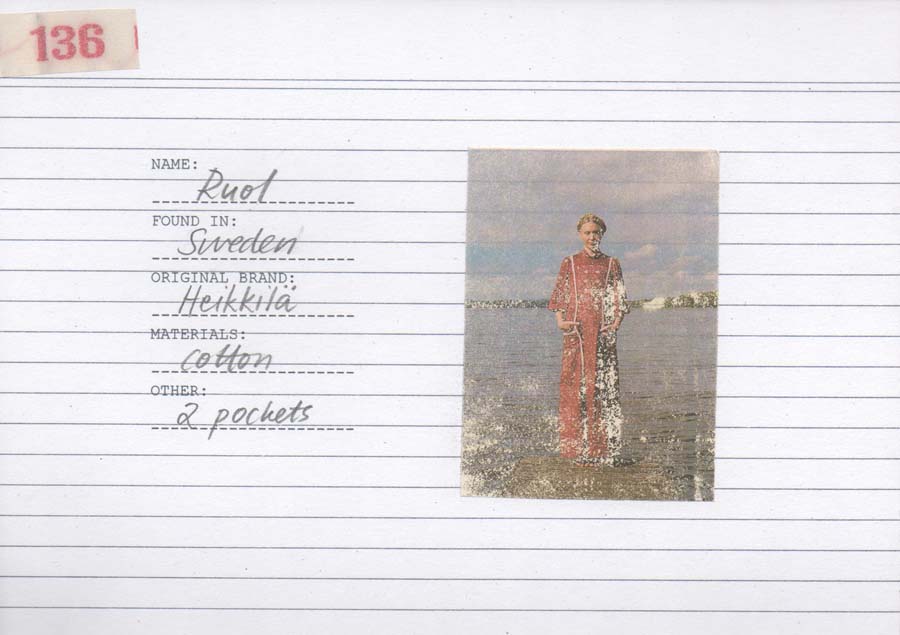 136
NAME:
Ruol
FOUND IN:
Sweden
ORIGINAL BRAND:
Heikkilä
MATERIALS:
cotton
OTHER:
2 pockets